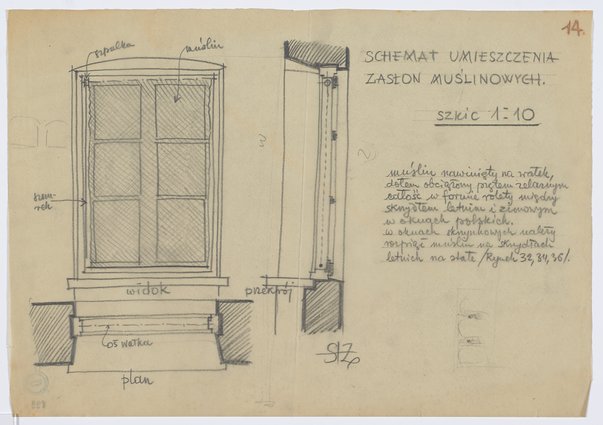 14.
SCHEMAT UMIESZCZENIA
ZASŁON MUŚLINOWYCH.
szkic 1:10
szpulka
muślin
sznu-
rek
muślin nawinięty na wałek,
dołem obciążony prętem żelaznym
całość w formie rolety między
skrzydłem letnim i zimowym
w oknach polskich.
w oknach skrzynkowych należy
rozpiąć muślin na skrzydłach
letnich na stałe /Rynek 32, 34, 36/.
widok
przekrój
oś wałka
plan